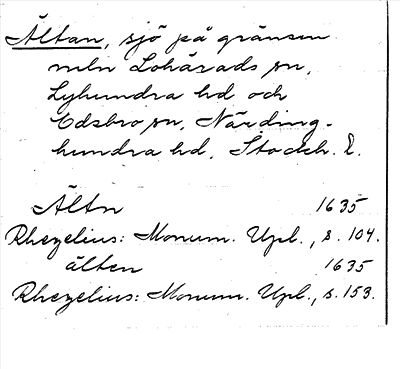 Ältan, sjö på gränsen
meln Lohärads sn,
Lyhundra hd och
Edsbro sn, Närding-
hundra hd, Stockh. l.
Ältn 1635
Rhezelius: Monum. Upl., s. 104.
älten 1635
Rhezelius: Monum. Upl., s. 153.